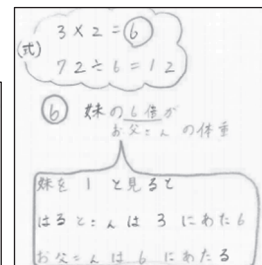 (式)
3×2=⑥
72÷6=12
⑥ 妹の6倍が
お父さんの体重
妹を 1 と見ると
はるとさんは 3 にあたる
お父さんは 6 にあたる